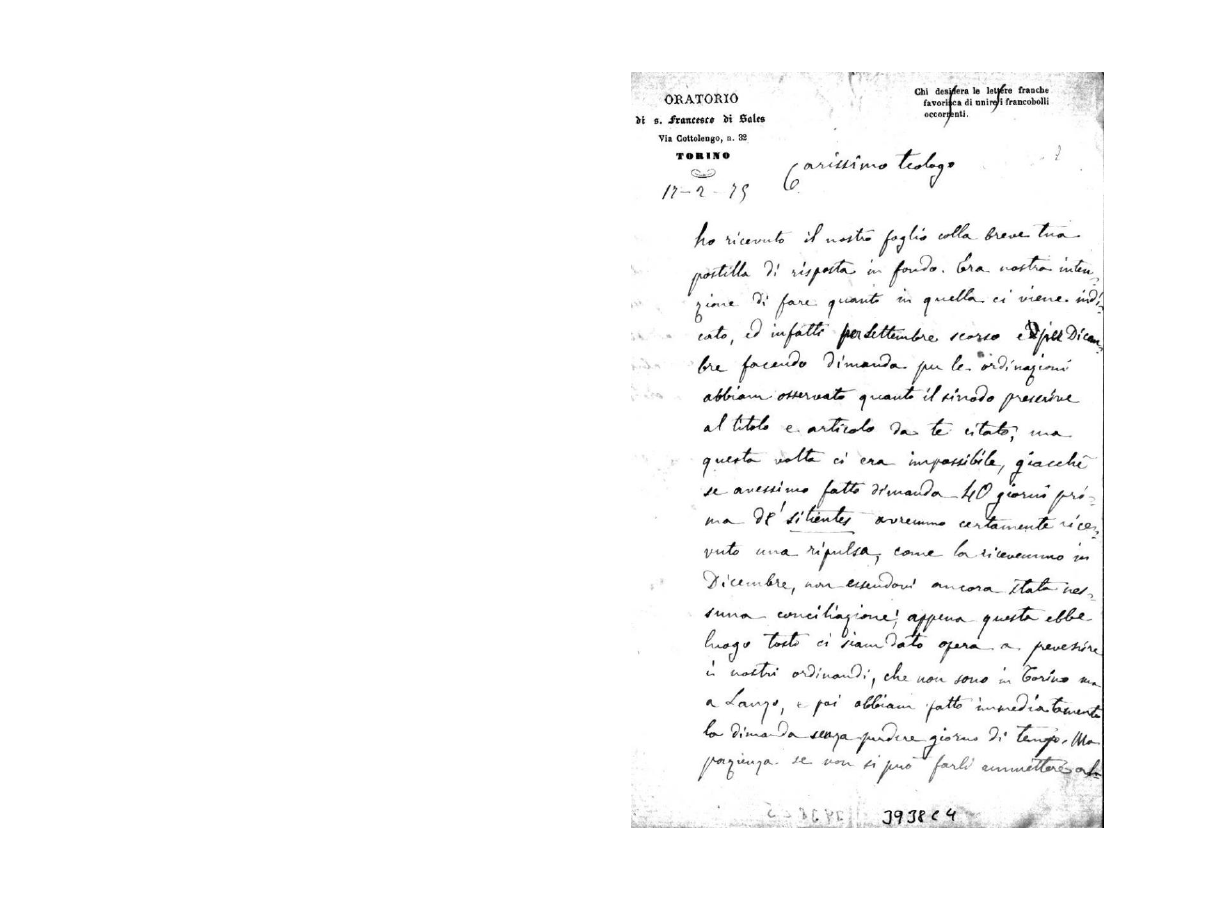 ORATORIO
di s. Francesco di Sales
Via Cottolengo, n. 32
TORINO
Chi desidera le lettere franche
favorisca di unire i francobolli
occorrenti.
17-2-75
Carissimo teologo
ho ricevuto il nostro foglio colla breve tua
postilla di risposta in fondo. Era nostra inten-
zione di fare quanto in quella ci viene indi-
cato, ed infatti per Settembre scorso e per Dicem-
bre facendo dimanda per le ordinazioni
abbiam osservato quanto il sinodo prescrive
al titolo e articolo da te citato; ma
questa volta ci era impossibile, giacchè
se avessimo fatto dimanda 40 giorni pri-
ma de' sitientes avremmo certamente rice-
vuto una ripulsa, come la ricevemmo in
Dicembre, non essendovi ancora stata nes-
suna conciliazione; appena questa ebbe
luogo tosto ci siam dato opera a
i nostri ordinandi, che non sono in Torino ma
a Lanzo, e poi abbiam fatto immediatamente
la dimanda senza perdere giorno di tempo. Ma
pazienza se non si può farli ammettere al-
3938C4